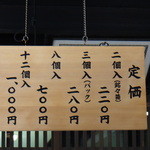 定価
二個入（託々燕）
二二〇円
三個入（パック）
二八〇円
八個入
七〇〇円
十二個入
一、〇〇〇円